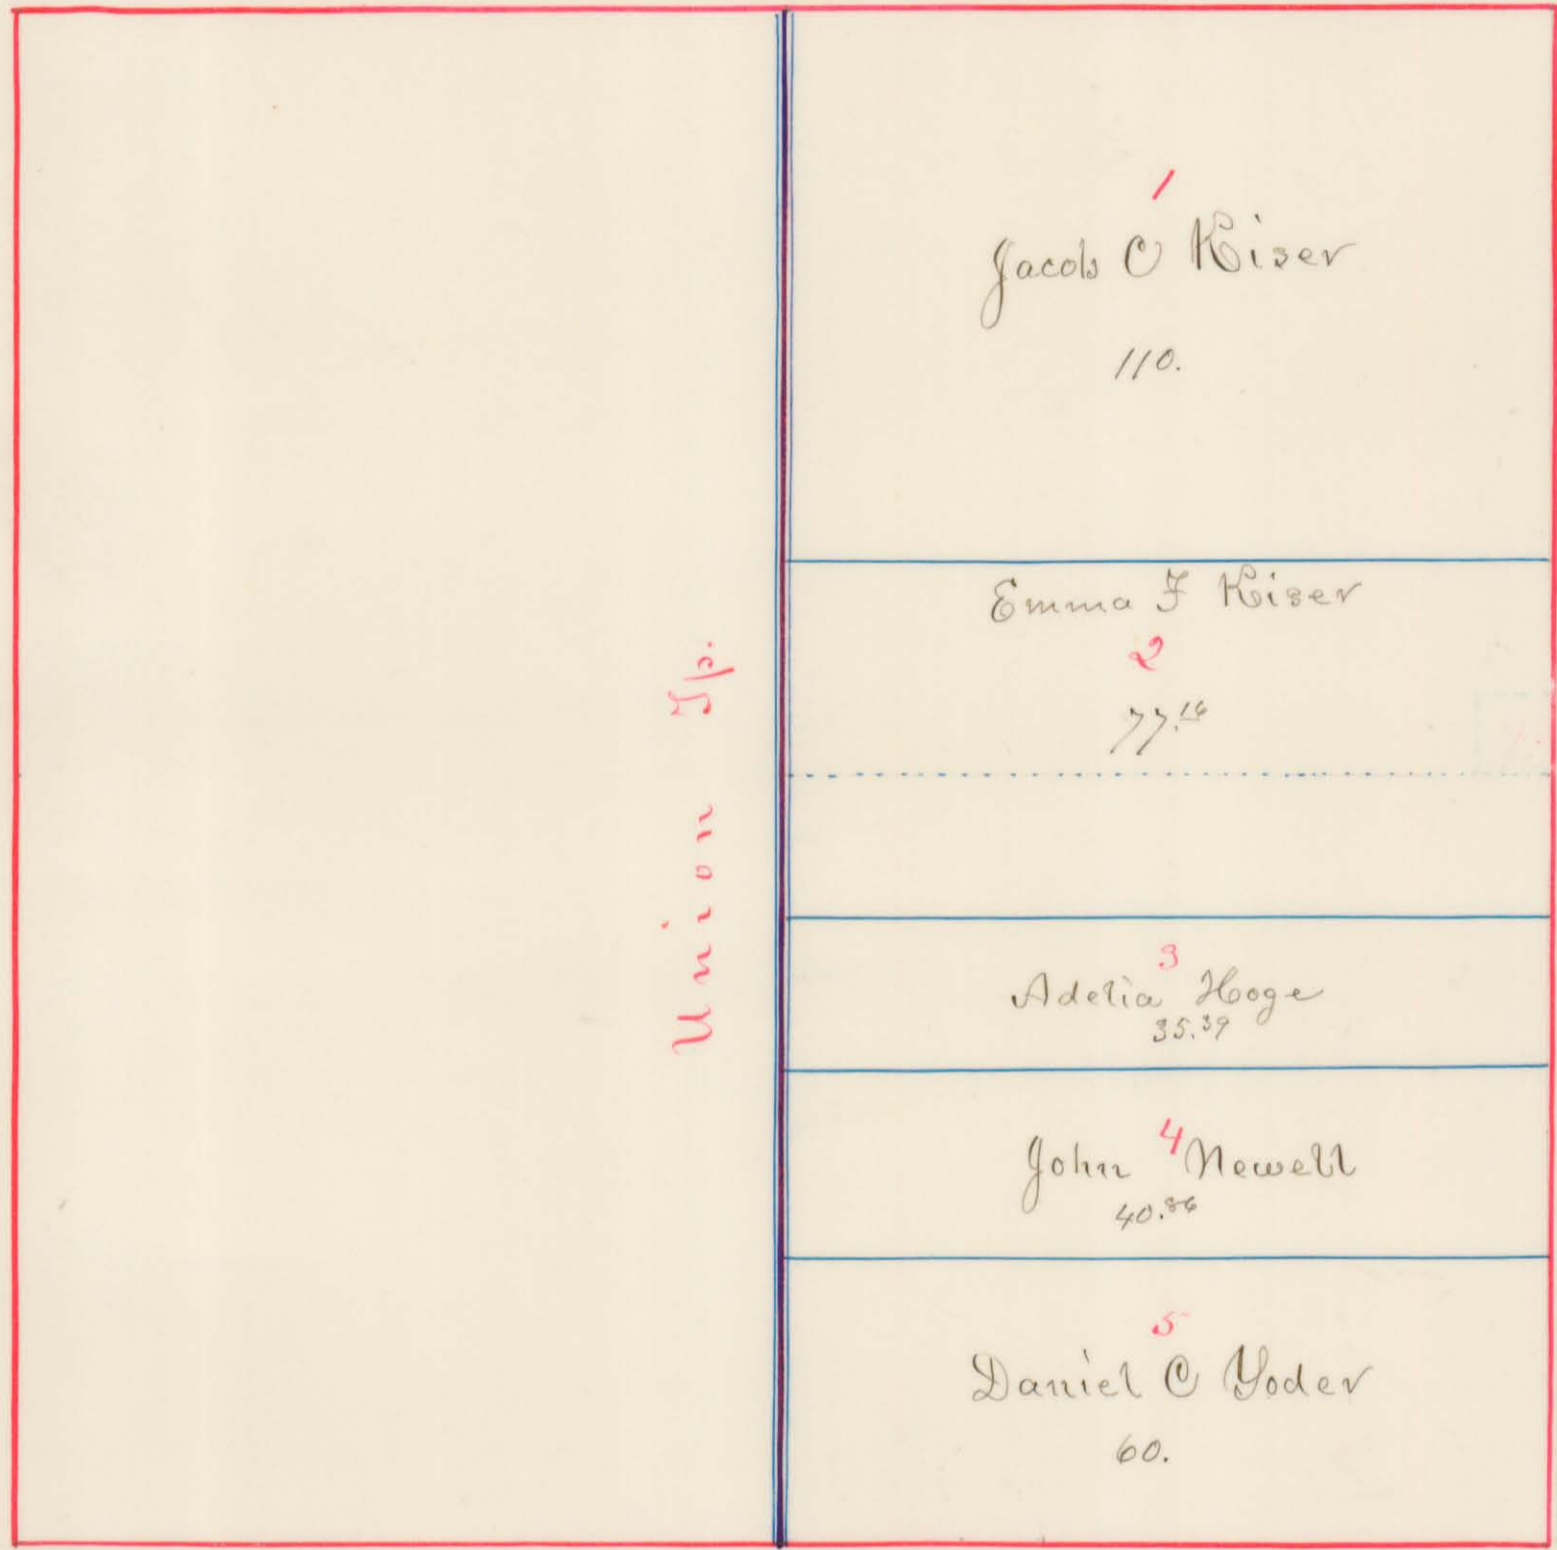 Union Tp.
1
Jacob C Kiser
110.
Emma F Kiser
2
77.16
3
Adelia Hoge
35.39
4
John Newell
40.86
5
Daniel C Yoder
60.